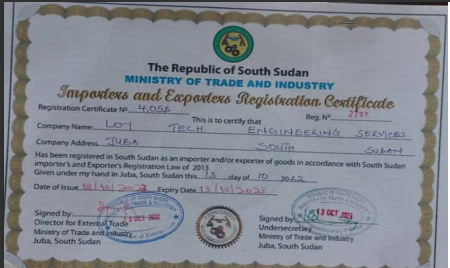 The Republic of South Sudan
MINISTRY OF TRADE AND INDUSTRY
Importers and Exporters Registration Certificate
Registration Certificate Nº 4,056 Reg. Nº 2197
This is to certify that
Company Name: LOY TECH ENGINEERING SERVICES
Company Address JUBA SOUTH SUDAN
Has been registered in South Sudan as an importer and/or exporter of goods in accordance with South Sudan
importer's and Exporter's Registration Law of 2013
Given under my hand in Juba, South Sudan this 13 day of 10 2022
Date of Issue 18/10/2022 Expiry Date 13/10/2023
Signed by:
Director for External Trade
Ministry of Trade and Industry
Juba, South Sudan
13 OCT 2022
Signed by
Undersecretary
Ministry of Trade and Industry
Juba, South Sudan
13 OCT 2022